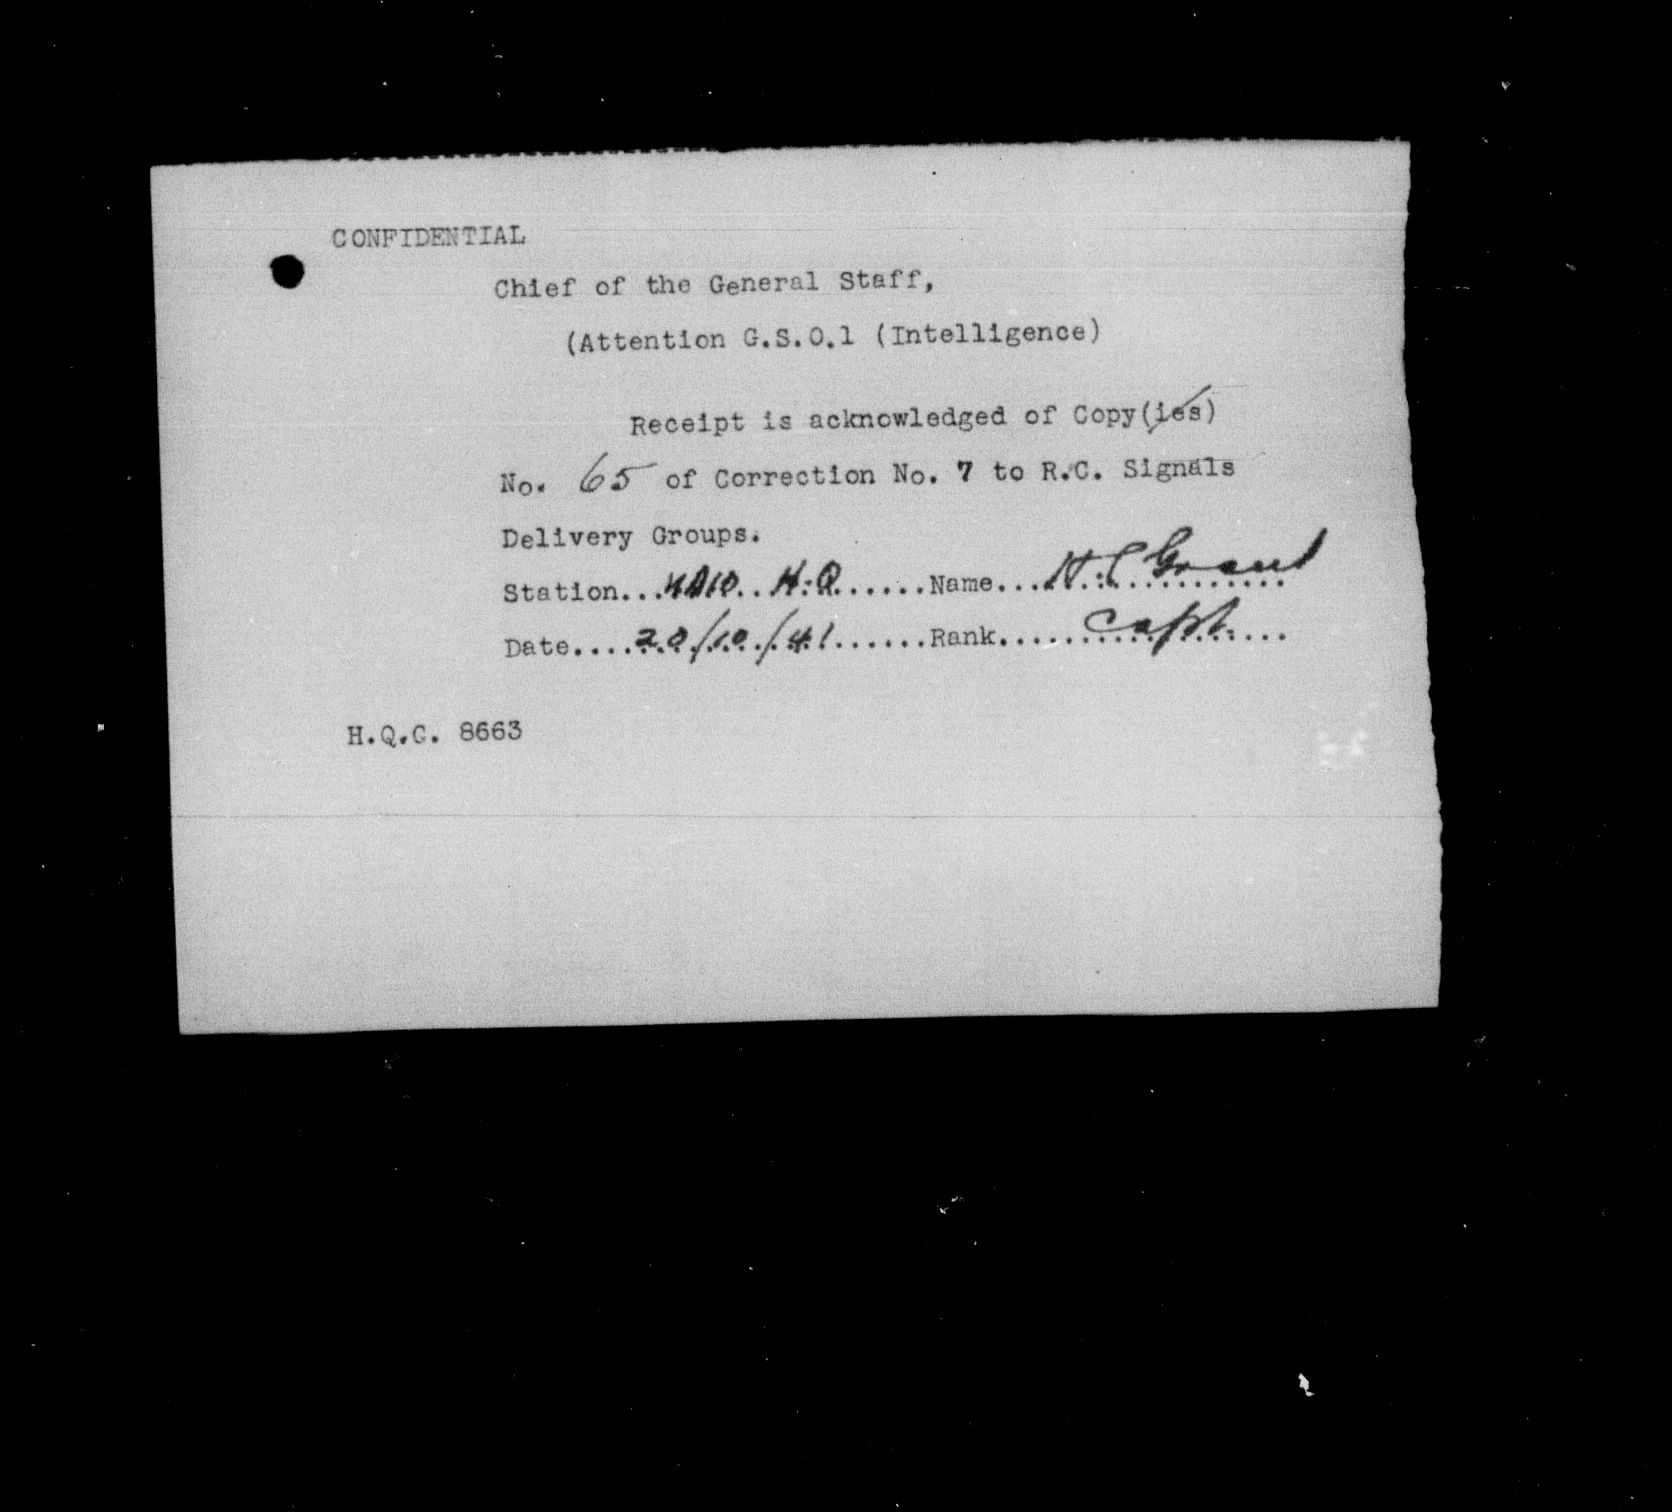 CONFIDENTIAL
Chief of the General Staff,
(Attention G.S.O.1 (Intelligence)
Receipt is acknowledged of Copy(ies)
No. 65 of Correction No. 7 to R.C. Signals
Delivery Groups.
Station... H.Q......Name...H.C Grant
Date....20/10/41......Rank......Capt.
H.Q.C. 8663